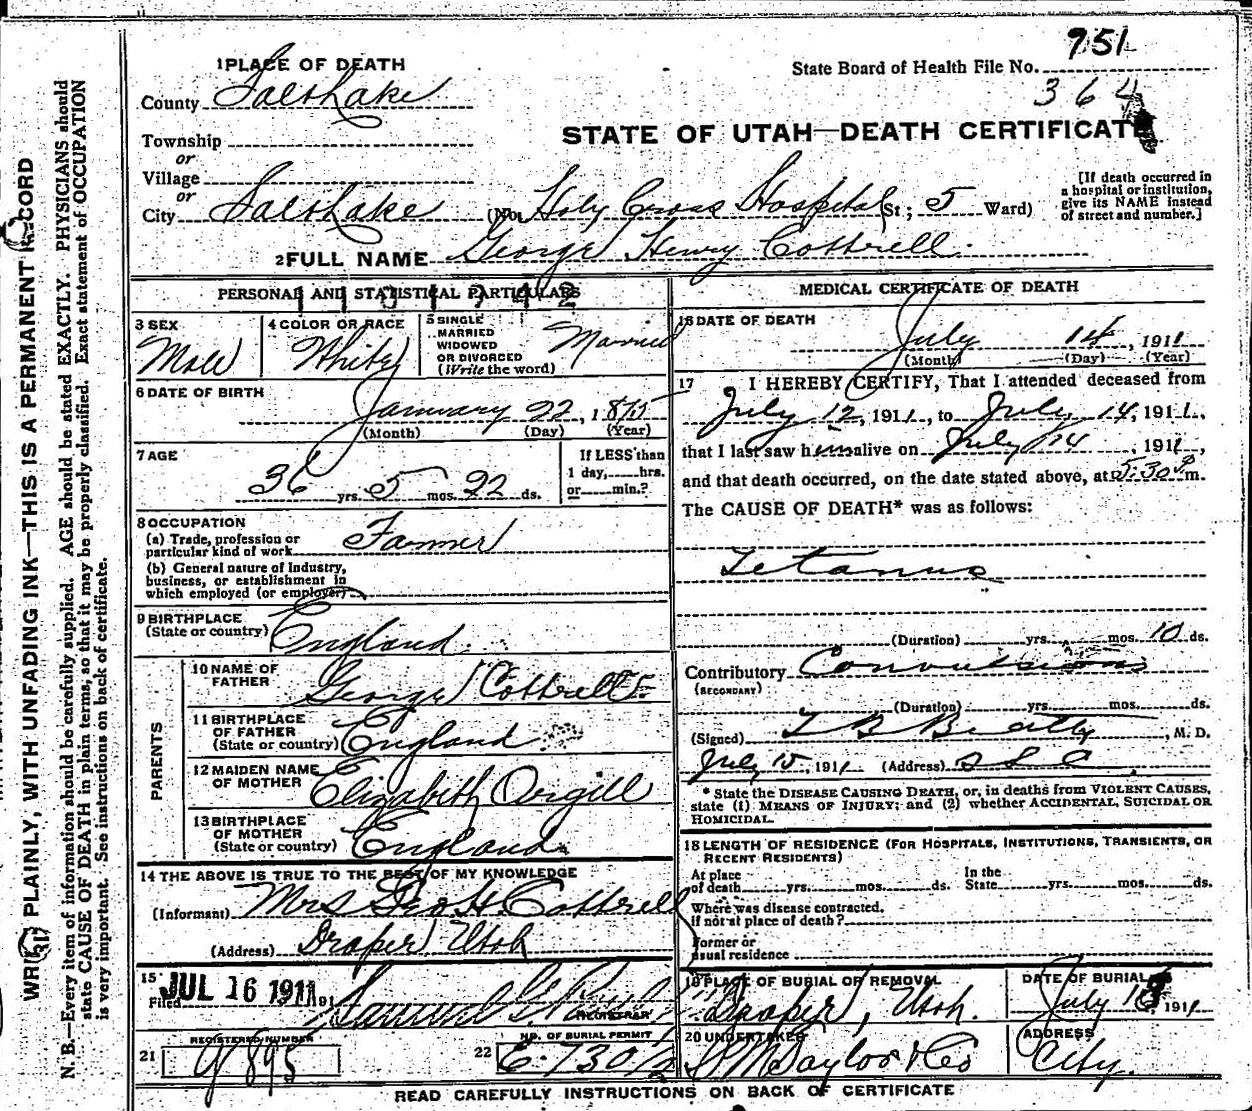 951
State Board of Health File No.
364
1 PLACE OF DEATH
County Salt Lake
STATE OF UTAH—DEATH CERTIFICATE
Township
or
Village
or
City Salt Lake (No. Holy Cross Hospital St; 5 Ward)
[If death occurred in
a hospital or institution,
give its NAME instead
of street and number.]
2 FULL NAME George Henry Cottrell.
PERSONAL AND STATISTICAL PARTICULARS
3 SEX
Male
4 COLOR OR RACE
White
5 SINGLE
MARRIED
WIDOWED
OR DIVORCED
(Write the word)
Married
6 DATE OF BIRTH
January 22, 1875
(Month) (Day) (Year)
7 AGE
36 yrs. 5 mos. 22 ds.
If LESS than
1 day, hrs.
or min.?
8 OCCUPATION
(a) Trade, profession or
particular kind of work Farmer
(b) General nature of industry,
business, or establishment in
which employed (or employer)
9 BIRTHPLACE
(State or country) England
PARENTS
10 NAME OF
FATHER George Cottrell
11 BIRTHPLACE
OF FATHER
(State or country) England
12 MAIDEN NAME
OF MOTHER Elizabeth Orgill
13 BIRTHPLACE
OF MOTHER
(State or country) England
14 THE ABOVE IS TRUE TO THE BEST OF MY KNOWLEDGE
(Informant) Mrs Geo H. Cottrell
(Address) Draper Utah
15
Filed JUL 16 1911 191
REGISTRAR
REGISTERED NUMBER
21 9895
NO. OF BURIAL PERMIT
22 E-1301/2
MEDICAL CERTIFICATE OF DEATH
16 DATE OF DEATH
July 14, 1911
(Month) (Day) (Year)
17 I HEREBY CERTIFY, That I attended deceased from
July 12, 1911, to July 14, 1911,
that I last saw him alive on July 14, 1911,
and that death occurred, on the date stated above, at 5:30 P m.
The CAUSE OF DEATH* was as follows:
Tetanus
(Duration) yrs. mos. 10 ds.
Contributory Convulsions
(SECONDARY)
(Duration) yrs. mos. ds.
(Signed) T B Beatty, M. D.
July 15, 1911 (Address) S L C
* State the DISEASE CAUSING DEATH, or, in deaths from VIOLENT CAUSES,
state (1) MEANS OF INJURY; and (2) whether ACCIDENTAL, SUICIDAL OR
HOMICIDAL.
18 LENGTH OF RESIDENCE (FOR HOSPITALS, INSTITUTIONS, TRANSIENTS, OR
RECENT RESIDENTS)
At place
of death yrs. mos. ds.
In the
State yrs. mos. ds.
Where was disease contracted,
if not at place of death?
Former or
usual residence
19 PLACE OF BURIAL OR REMOVAL
Draper, Utah.
DATE OF BURIAL
July 18, 1911
20 UNDERTAKER
S M Taylor & Co
ADDRESS
City.
READ CAREFULLY INSTRUCTIONS ON BACK OF CERTIFICATE
WRITE PLAINLY, WITH UNFADING INK—THIS IS A PERMANENT RECORD
N. B.—Every item of information should be carefully supplied. AGE should be stated EXACTLY. PHYSICIANS should
state CAUSE OF DEATH in plain terms, so that it may be properly classified. Exact statement of OCCUPATION
is very important. See instructions on back of certificate.